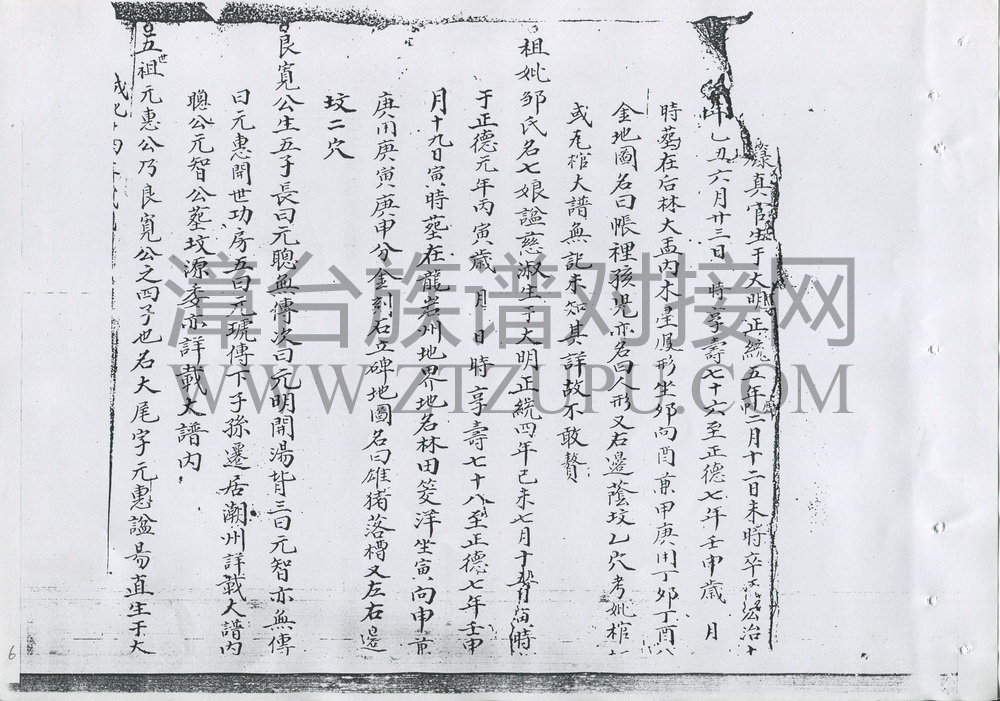 真官生于大明正統五年二月十二日未時卒 弘治十
年乙丑六月廿三日 時享壽七十六至正德七年壬申歲 月
時塟在后林大盂內木星 形坐夘向酉兼甲庚用丁夘丁酉八
金地圖名曰帳裡孩兒亦名曰人形又右邊蔭坟乙穴考妣棺
或瓦棺大譜無記未知其詳故不敢贅
祖妣邹氏名七娘謚慈淑生于大明正統四年己未七月十 日 時
于正德元年丙寅歲 月 日 時享壽七十八至正德七年壬申
月十九日寅時塟在龍岩州地界地名林田 洋坐寅向申兼
庚用庚寅庚申分金刻石立碑地圖名曰雄猪落槽又左右邊
坟二穴
良寬公生五子長曰元聰無傳次曰元明開湯背三曰元智亦無傳
曰元惠開世功房五曰元琥傳下子孫遷居潮州詳載大譜內
聰公元智公塟坟源委亦詳載大譜內
五世祖元惠公乃良寬公之四子也名大尾字元惠謚易直生于大
漳台族谱对接网
WWW.ZTZUPU.COM
6